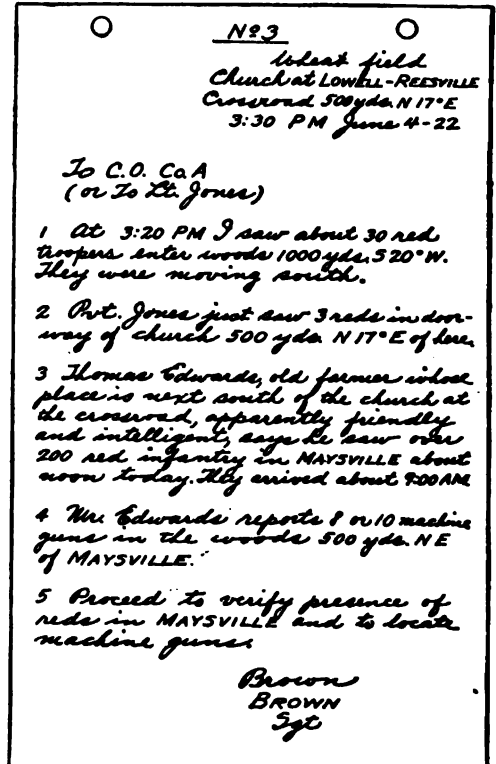 Nº 3
Wheat field
Church at LOWELL-REESVILLE
Crossroad 500 yds. N 17° E
3:30 PM June 4-22
To C.O. Co. A
(or To Lt. Jones)
1 At 3:20 PM I saw about 30 red
troopers enter woods 1000 yds. S 20° W.
They were moving south.
2 Pvt. Jones just saw 3 reds in door-
way of church 500 yds. N 17° E of here.
3 Thomas Edwards, old farmer whose
place is next south of the church at
the crossroad, apparently friendly
and intelligent, says he saw over
200 red infantry in MAYSVILLE about
noon today. They arrived about 9:00 AM
4 Mr. Edwards reports 8 or 10 machine
guns in the woods 500 yds. NE
of MAYSVILLE.
5 Proceed to verify presence of
reds in MAYSVILLE and to locate
machine guns.
Brown
BROWN
Sgt